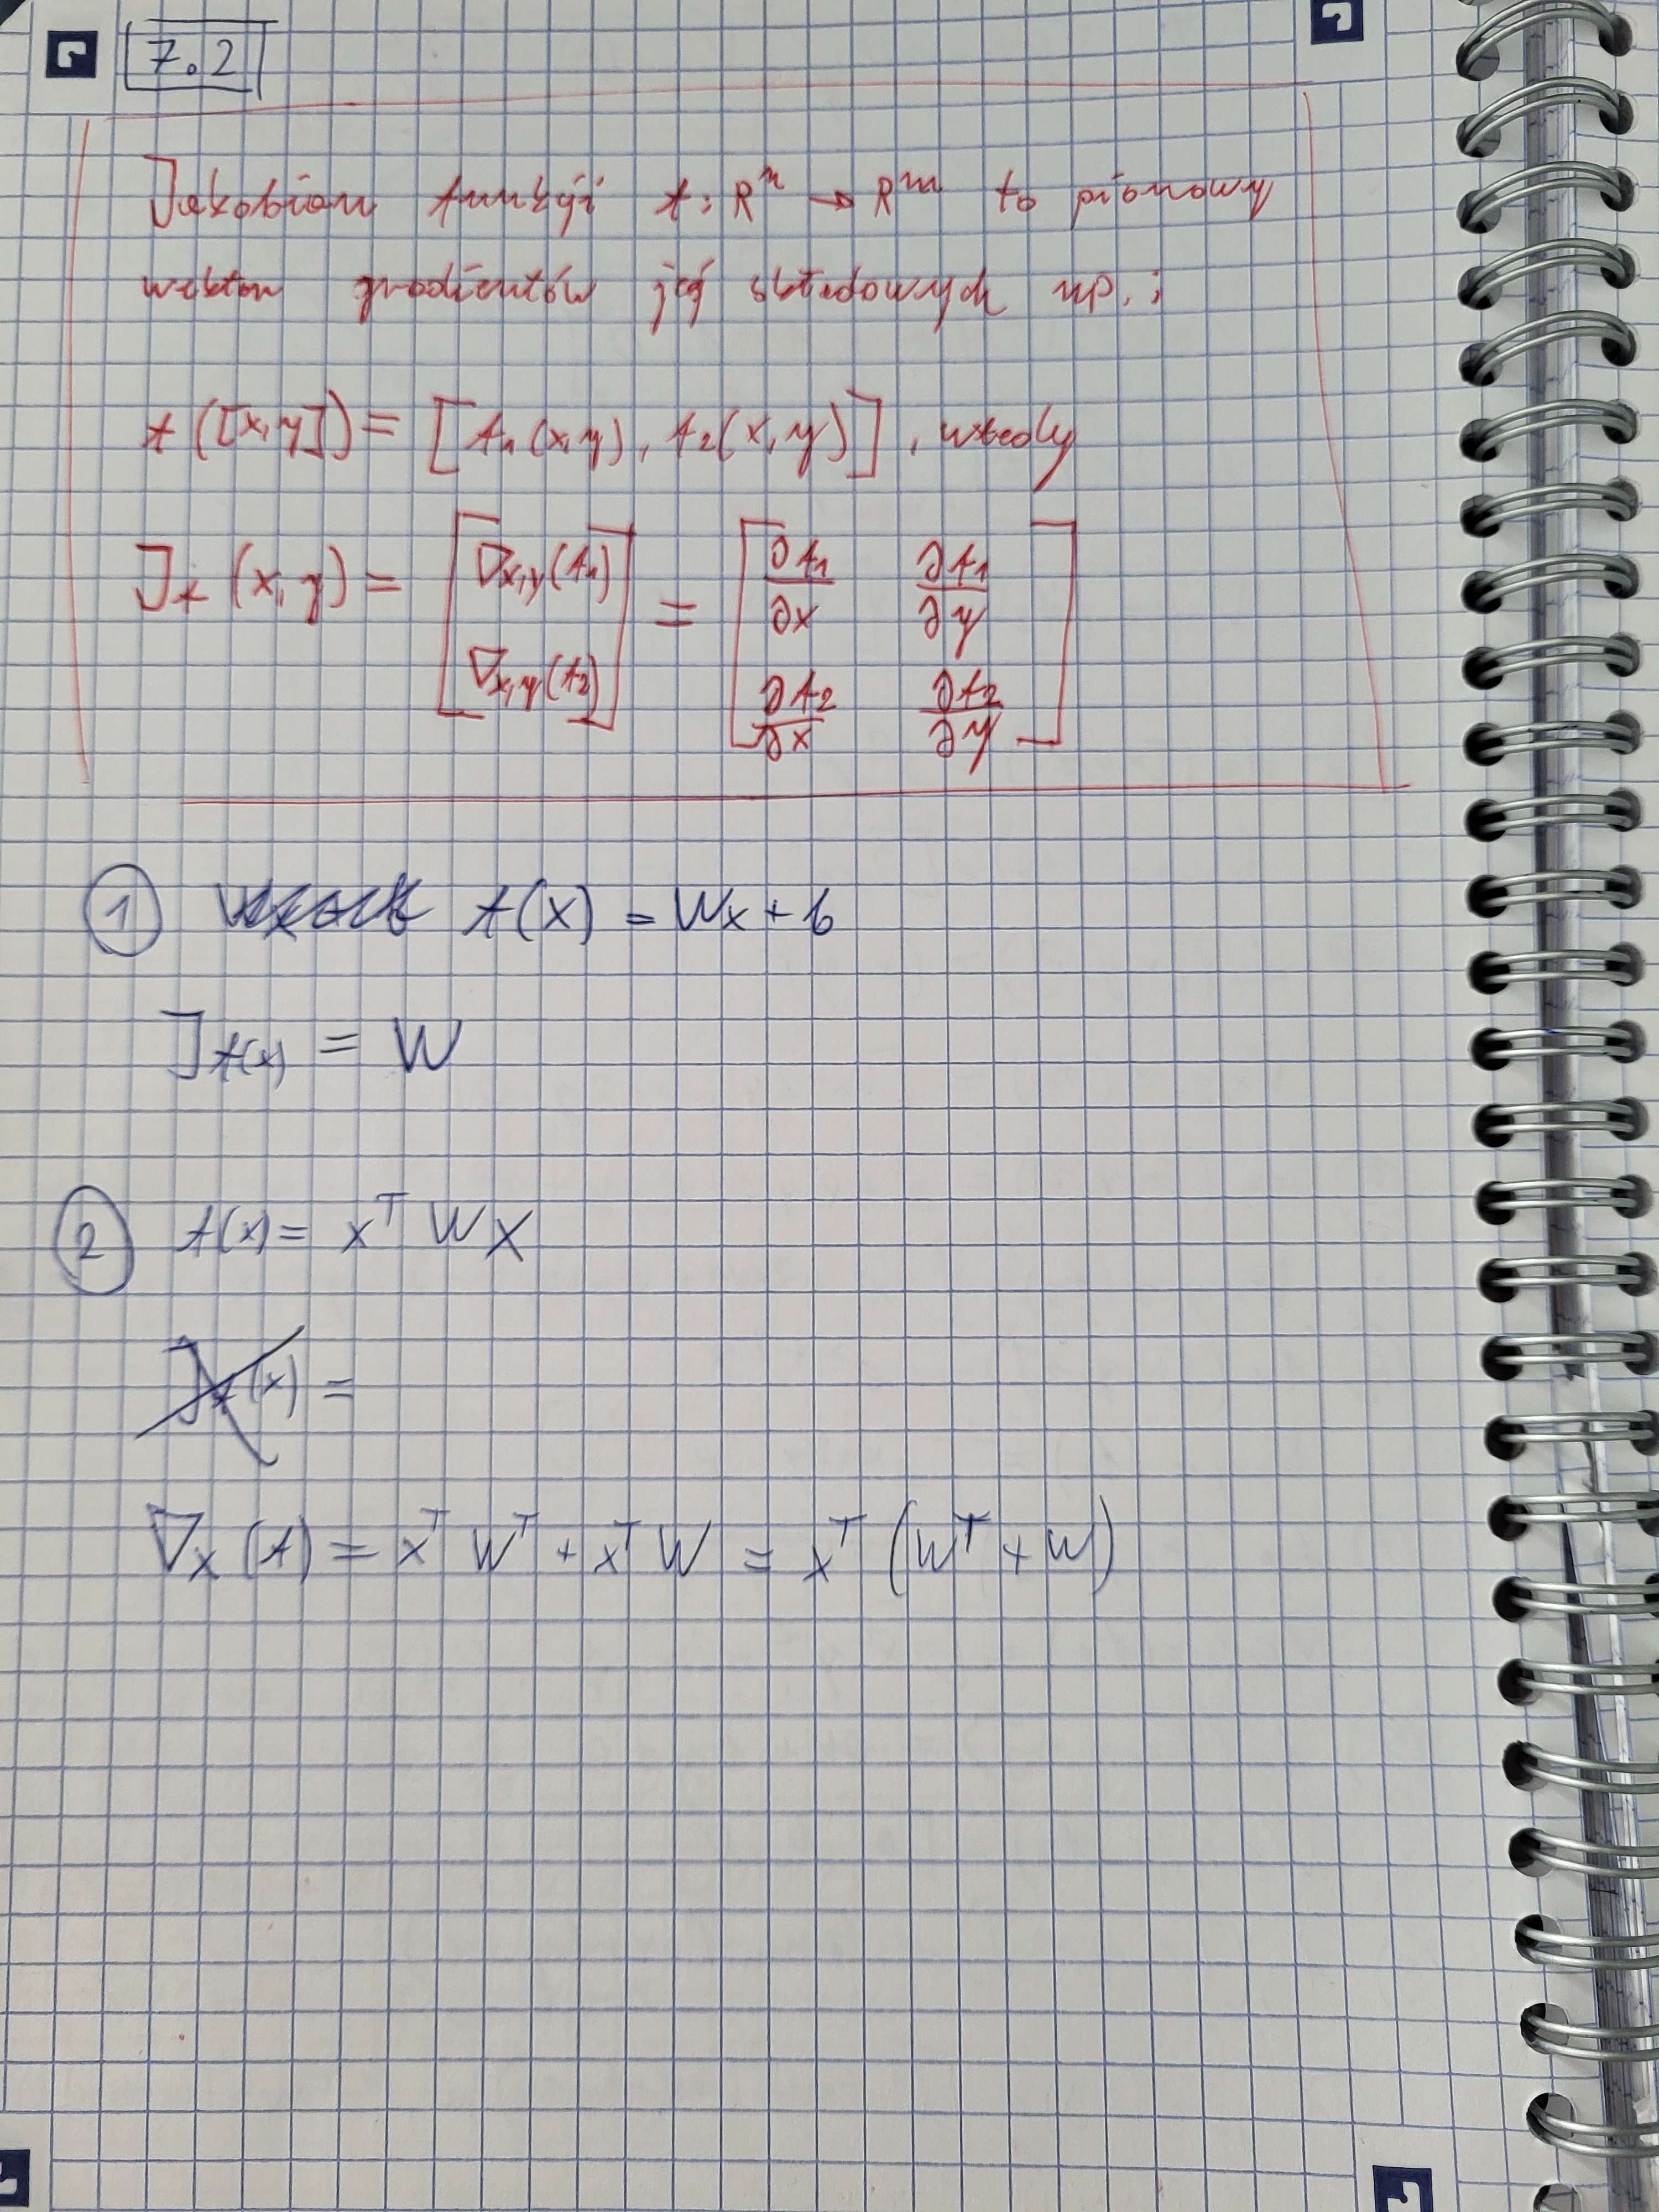 7.2
Jakobian funkcji f: R^n → R^m to pionowy
wektor gradientów jej składowych np.:
f([x,y]) = [f₁(x,y), f₂(x,y)], wtedy
J_f(x,y) = [∇x,y(f₁) ∇x,y(f₂)] = [∂f₁/∂x ∂f₁/∂y ∂f₂/∂x ∂f₂/∂y]
1 f(x) = Wx + b
J_f(x) = W
2 f(x) = x^T W x
J_f(x) =
∇x(f) = x^T W^T + x^T W = x^T (W^T + W)